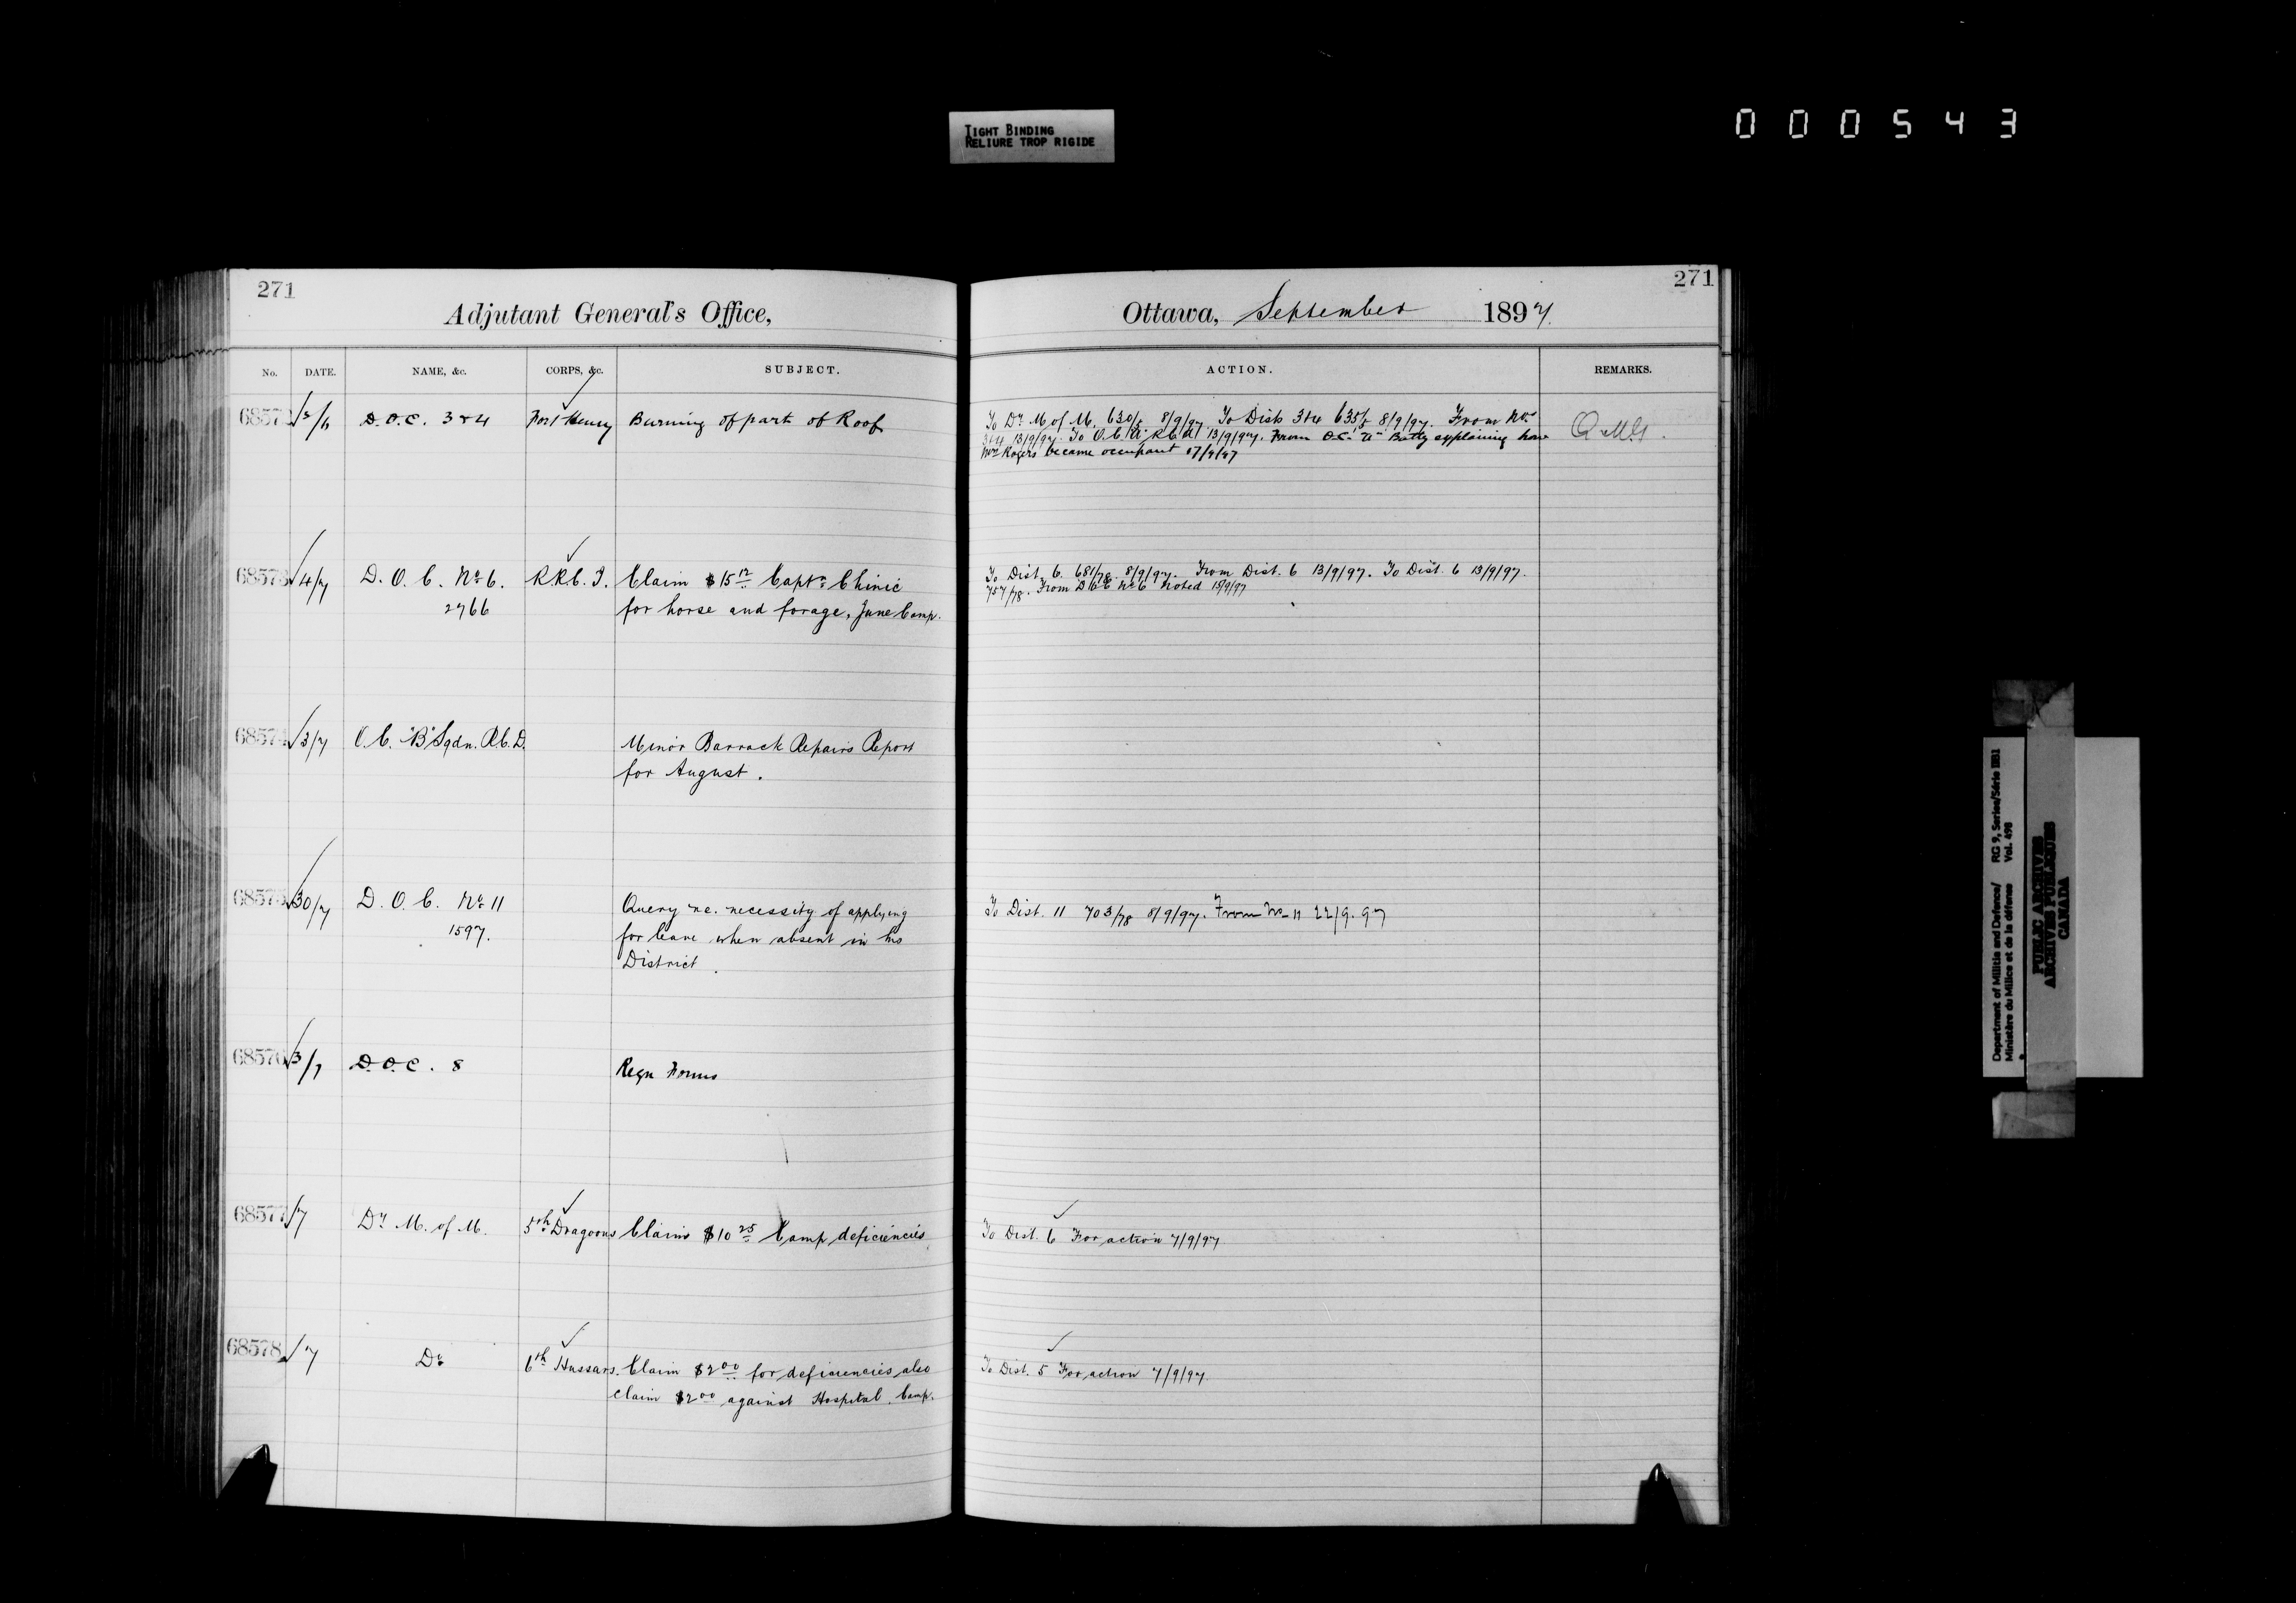 TIGHT BINDING
RELIURE TROP RIGIDE
000543
271
Adjutant General's Office,
No. DATE. NAME, &c. CORPS, &c. SUBJECT.
D.O.C. 3 & 4 Fort Henry Burning of part of Roof
68573 4/7 D.O.C. No. 6. R.R.C.I. Claim $15.12 Capt. Chinic
2766 for horse and forage, June Camp.
68574 3/7 O.C. "B" Sqdn. R.C.D. Minor Barrack Repairs Report
for August.
68575 30/7 D.O.C. No. 11 Query re. necessity of applying
1597. for leave when absent in his
District.
68576 3/7 D.O.C. 8 Regn Forms
68577 /7 Dr. M. of M. 5th Dragoons Claims $10.25 Camp deficiencies
68578 /7 Do 6th Hussars. Claim $2.00 for deficiencies also
claim $2.00 against Hospital, Camp.
271
Ottawa, September 1897.
ACTION. REMARKS.
To Dr. M. of M. 8/9/97. To Dist 3 & 4 8/9/97. From Nos Q.M.G.
3 & 4 13/9/97. To O.C. "A" R.C.A. 13/9/97. From O.C. "A" Batty explaining how
Rogers became occupant
To Dist. 6. 681/78. 8/9/97. From Dist. 6 13/9/97. To Dist. 6 13/9/97.
757/78. From D.O.C. No. 6 Noted
To Dist. 11 703/78 8/9/97. From No. 11 22/9.97
To Dist. 6 For action 7/9/97
To Dist. 5 For action 7/9/97.
Department of Militia and Defence/ RG 9, Series/Série IIB1
Ministère du Milice et de la défense Vol. 498
PUBLIC ARCHIVES
ARCHIVES PUBLIQUES
CANADA